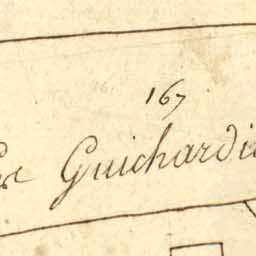 167
Guichardi